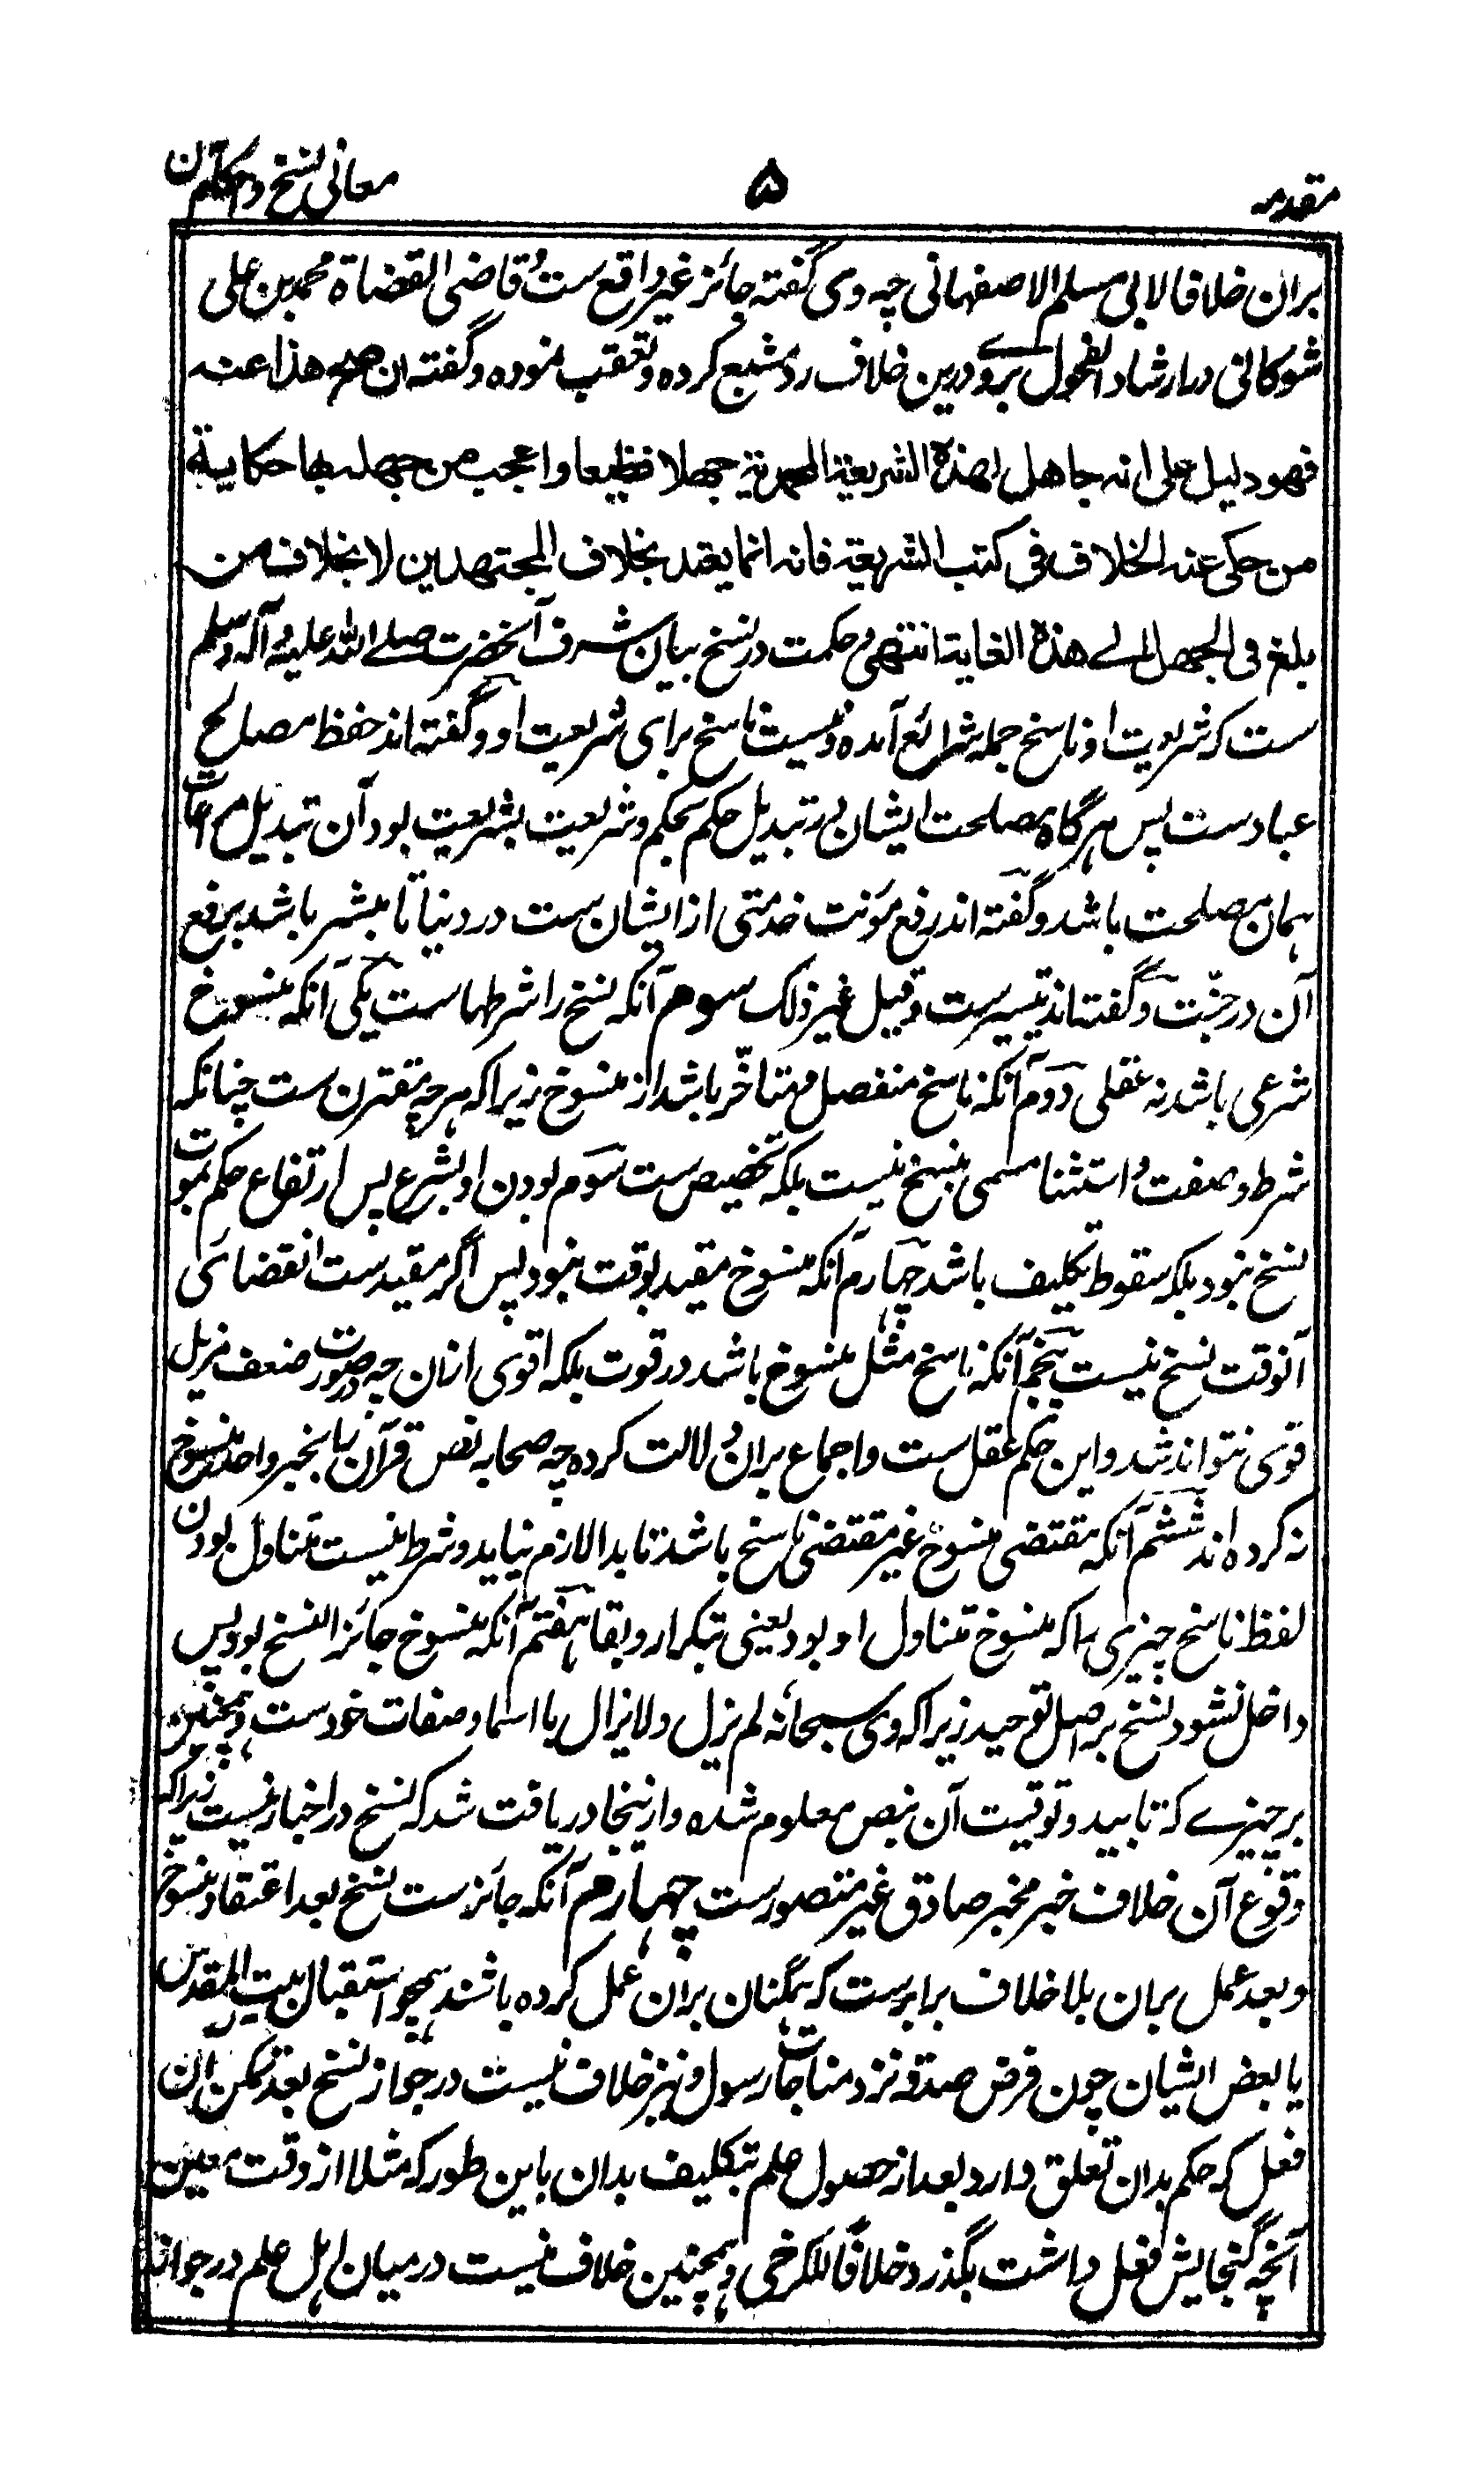 مقدمه ۵ معانی نسخ و احکام آن
بران خلافا لابی مسلم الاصفهانی چه وی گفته جائز غیر واقع ست و قاضی القضاة محمد بن علی
شوکانی در ارشاد الفحول برو درین خلاف رد مشبع کرده و تعقب نموده و گفته ان صح هذا عنه
فهو دلیل علی انه جاهل بهذه الشریعة المحمدیة جهلا فظیعا واعجب من جهله بها حکایة
من حکی عنه الخلاف فی کتب الشریعة فانه انما یعتد بخلاف المجتهدین لا بخلاف من
بلغ فی الجهل الی هذه الغایة انتهی و حکمت در نسخ بیان شرف آنحضرت صلے الله علیه وآله وسلم
ست که شریعت او ناسخ جمله شرائع آمده و نیست ناسخ برای شریعت او و گفته اند حفظ مصالح
عبادست پس هرگاه مصلحت ایشان در تبدیل حکم بحکم و شریعت بشریعت بود آن تبدیل مراعات
همان مصلحت باشد و گفته اند رفع مؤنت خدمتی از ایشان ست در دنیا تا مبشر باشد برفع
آن در جنت و گفته اند تیسیرست و قیل غیر ذلک سوم آنکه نسخ را شرطهاست یکی آنکه منسوخ
شرعی باشد نه عقلی دوم آنکه ناسخ منفصل و متاخر باشد از منسوخ زیرا که هرچه مقترن ست چنانکه
شرط و صفت و استثنا مسمی بنسخ نیست بلکه تخصیص ست سوم بودن او بشرع پس ارتفاع حکم بموت
نسخ نبود بلکه سقوط تکلیف باشد چهارم آنکه منسوخ مقید بوقت نبود پس اگر مقیدست انقضای
آنوقت نسخ نیست پنجم آنکه ناسخ مثل منسوخ باشد در قوت بلکه اقوی ازان چه در صورت ضعف مزیل
قوی نتواند شد و این حکم عقل ست و اجماع بران دلالت کرده چه صحابه نص قرآن را بخبر واحد منسوخ
نه کرده اند ششم آنکه مقتضی منسوخ غیر مقتضی ناسخ باشد تا بدا لازم نیاید و شرط نیست متناول بودن
لفظ ناسخ چیزی را که منسوخ متناول او بود یعنی بتکرار و بقا هفتم آنکه منسوخ جائز النسخ بود پس
داخل نشود نسخ بر اصل توحید زیرا که وی سبحانه لم یزل و لا یزال با اسما و صفات خودست و همچنین
بر چیزے که تابید و توقیت آن بنص معلوم شده و ازینجا دریافت شد که نسخ در اخبار نیست زیراکه
وقوع آن خلاف خبر مخبر صادق غیر متصورست چهارم آنکه جائزست نسخ بعد اعتقاد منسوخ
و بعد عمل بران بلا خلاف برابرست که همگنان بران عمل کرده باشند همچو استقبال بیت المقدس
یا بعض ایشان چون فرض صدقه نزد مناجات رسول و نیز خلاف نیست در جواز نسخ بعد تمکن ازان
فعل که حکم بدان تعلق دارد بعد از حصول علم بتکلیف بدان باین طور که مثلا از وقت معین
آنچه گنجایش فعل داشت بگذرد خلافا للکرخی و همچنین خلاف نیست درمیان اهل علم در جواز